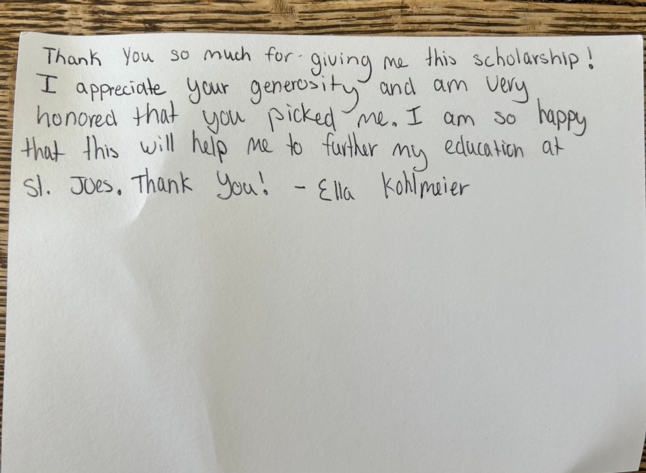 Thank You so much for giving me this scholarship!
I appreciate your generosity and am very
honored that you picked me. I am so happy
that this will help me to further my education at
St. Joes. Thank You! - Ella Kohlmeier